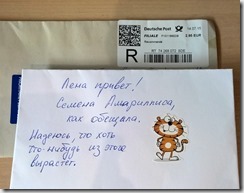 Deutsche Post
R
Лена привет!
Семена Амариллиса,
как обещала.
Надеюсь, что хоть
что-нибудь из этого
вырастет.